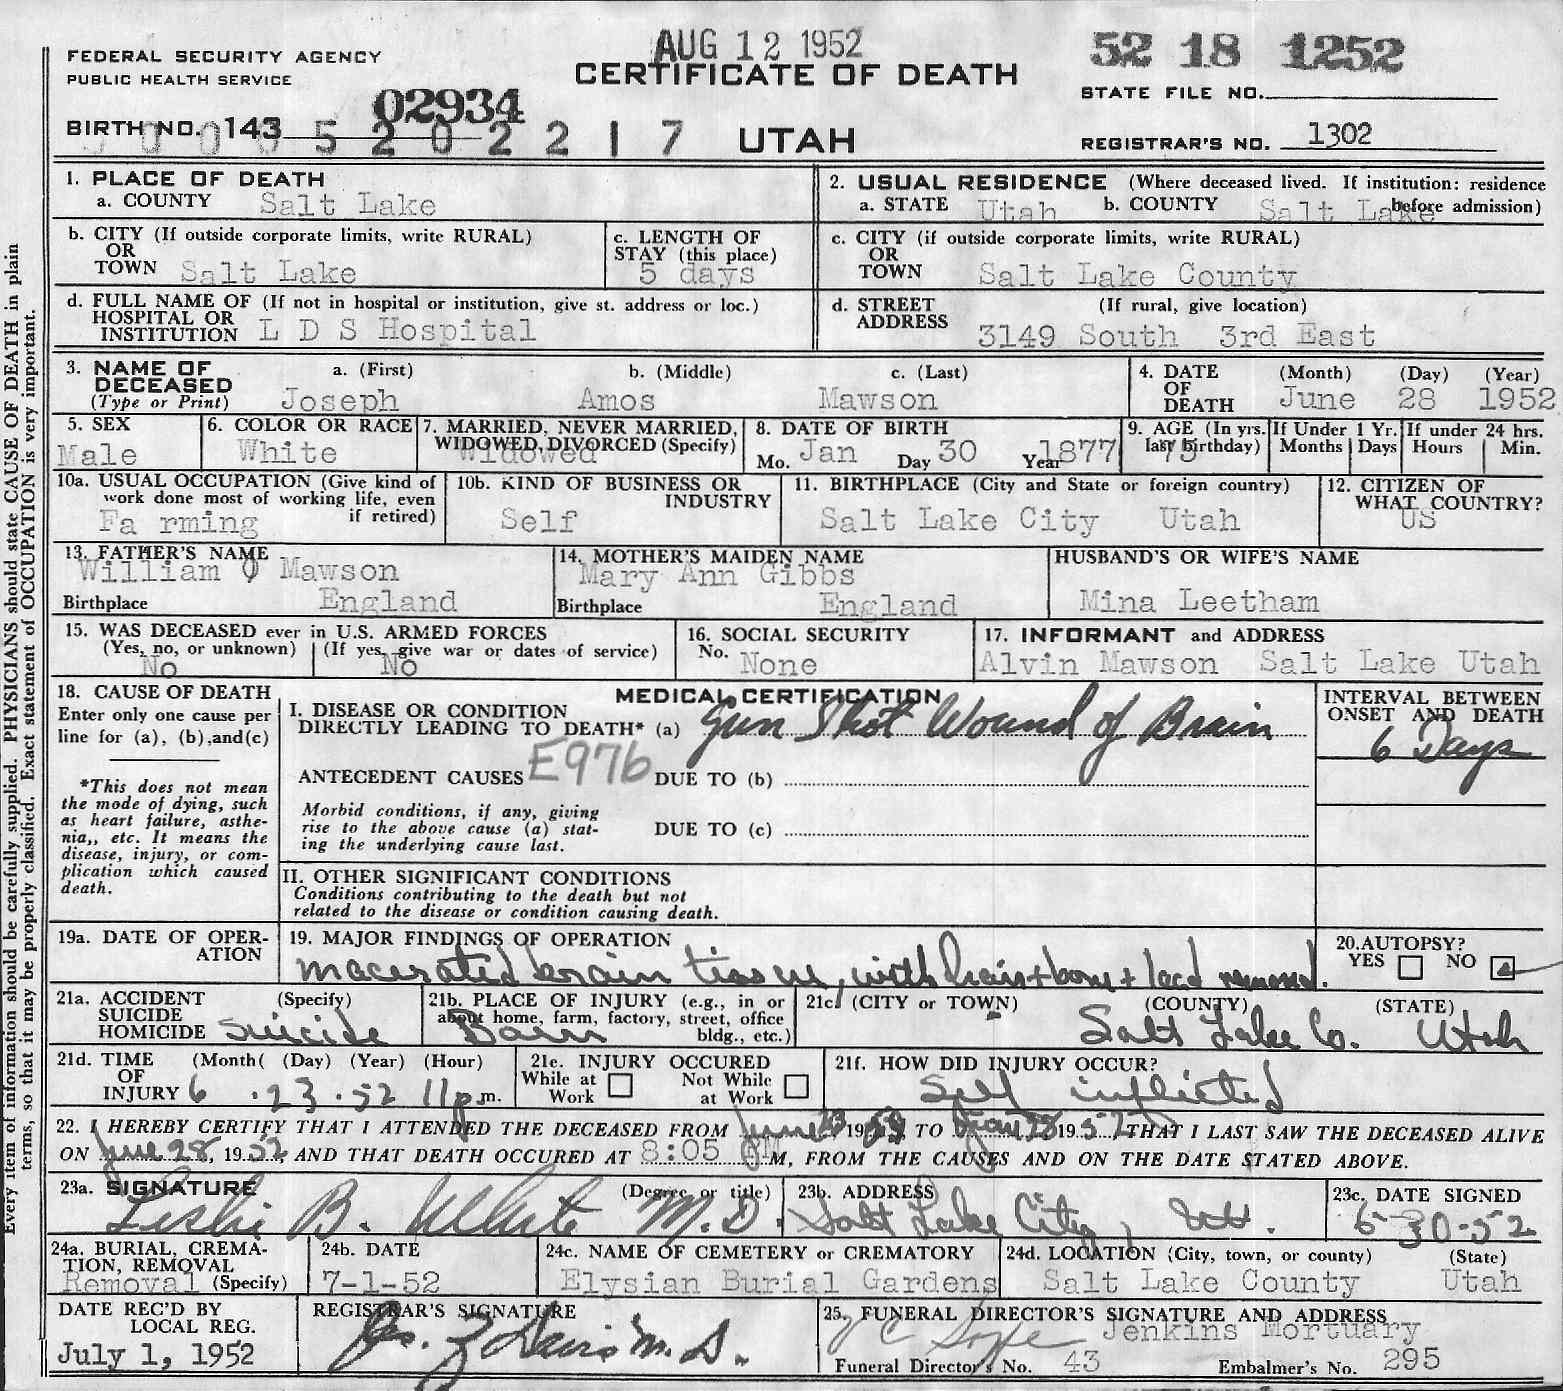 AUG 12 1952
52 18 1252
FEDERAL SECURITY AGENCY
PUBLIC HEALTH SERVICE
CERTIFICATE OF DEATH
STATE FILE NO.
02934
BIRTH NO. 143
5202217
UTAH
REGISTRAR'S NO. 1302
Every item of information should be carefully supplied. PHYSICIANS should state CAUSE OF DEATH in plain
terms, so that it may be properly classified. Exact statement of OCCUPATION is very important.
1. PLACE OF DEATH
a. COUNTY Salt Lake
2. USUAL RESIDENCE (Where deceased lived. If institution: residence
before admission)
a. STATE Utah b. COUNTY Salt Lake
b. CITY (If outside corporate limits, write RURAL)
OR
TOWN Salt Lake
c. LENGTH OF
STAY (this place)
5 days
c. CITY (if outside corporate limits, write RURAL)
OR
TOWN Salt Lake County
d. FULL NAME OF (If not in hospital or institution, give st. address or loc.)
HOSPITAL OR
INSTITUTION L D S Hospital
d. STREET (If rural, give location)
ADDRESS 3149 South 3rd East
3. NAME OF
DECEASED
(Type or Print)
a. (First) b. (Middle) c. (Last)
Joseph Amos Mawson
4. DATE
OF
DEATH
(Month) (Day) (Year)
June 28 1952
5. SEX
Male
6. COLOR OR RACE
White
7. MARRIED, NEVER MARRIED,
WIDOWED, DIVORCED (Specify)
Widowed
8. DATE OF BIRTH
Mo. Jan Day 30 Year 1877
9. AGE (In yrs.
last birthday)
75
If Under 1 Yr.
Months Days
If under 24 hrs.
Hours Min.
10a. USUAL OCCUPATION (Give kind of
work done most of working life, even
if retired)
Fa rming
10b. KIND OF BUSINESS OR
INDUSTRY
Self
11. BIRTHPLACE (City and State or foreign country)
Salt Lake City Utah
12. CITIZEN OF
WHAT COUNTRY?
US
13. FATHER'S NAME
William O Mawson
Birthplace England
14. MOTHER'S MAIDEN NAME
Mary Ann Gibbs
Birthplace England
HUSBAND'S OR WIFE'S NAME
Mina Leetham
15. WAS DECEASED ever in U.S. ARMED FORCES
(Yes, no, or unknown) (If yes, give war or dates of service)
No No
16. SOCIAL SECURITY
No. None
17. INFORMANT and ADDRESS
Alvin Mawson Salt Lake Utah
18. CAUSE OF DEATH
Enter only one cause per
line for (a), (b), and (c)
*This does not mean
the mode of dying, such
as heart failure, asthe-
nia,, etc. It means the
disease, injury, or com-
plication which caused
death.
MEDICAL CERTIFICATION
I. DISEASE OR CONDITION
DIRECTLY LEADING TO DEATH* (a) Gun Shot Wound of Brain
INTERVAL BETWEEN
ONSET AND DEATH
6 Days
ANTECEDENT CAUSES E976 DUE TO (b)
Morbid conditions, if any, giving
rise to the above cause (a) stat-
ing the underlying cause last.
DUE TO (c)
II. OTHER SIGNIFICANT CONDITIONS
Conditions contributing to the death but not
related to the disease or condition causing death.
19a. DATE OF OPER-
ATION
19. MAJOR FINDINGS OF OPERATION
macerated brain tissue, with hair + bone + lead removed.
20. AUTOPSY?
YES NO
21a. ACCIDENT (Specify)
SUICIDE
HOMICIDE Suicide
21b. PLACE OF INJURY (e.g., in or
about home, farm, factory, street, office
bldg., etc.)
Barn
21c. (CITY or TOWN) (COUNTY) (STATE)
Salt Lake Co. Utah
21d. TIME (Month( (Day) (Year) (Hour)
OF
INJURY 6 . 23 . 52 11 p m.
21e. INJURY OCCURED
While at Work Not While at Work
21f. HOW DID INJURY OCCUR?
Self inflicted
22. I HEREBY CERTIFY THAT I ATTENDED THE DECEASED FROM June 23 19 52, TO June 28 19 52, THAT I LAST SAW THE DECEASED ALIVE
ON June 28, 19 52, AND THAT DEATH OCCURED AT 8:05 M, FROM THE CAUSES AND ON THE DATE STATED ABOVE.
23a. SIGNATURE (Degree or title)
Leslie B. White M.D.
23b. ADDRESS
Salt Lake City, Ut.
23c. DATE SIGNED
6-30-52
24a. BURIAL, CREMA-
TION, REMOVAL
Removal (Specify)
24b. DATE
7-1-52
24c. NAME OF CEMETERY or CREMATORY
Elysian Burial Gardens
24d. LOCATION (City, town, or county) (State)
Salt Lake County Utah
DATE REC'D BY
LOCAL REG.
July 1, 1952
REGISTRAR'S SIGNATURE
Davis M.D.
25. FUNERAL DIRECTOR'S SIGNATURE AND ADDRESS
Jenkins Mortuary
Funeral Director's No. 43 Embalmer's No. 295